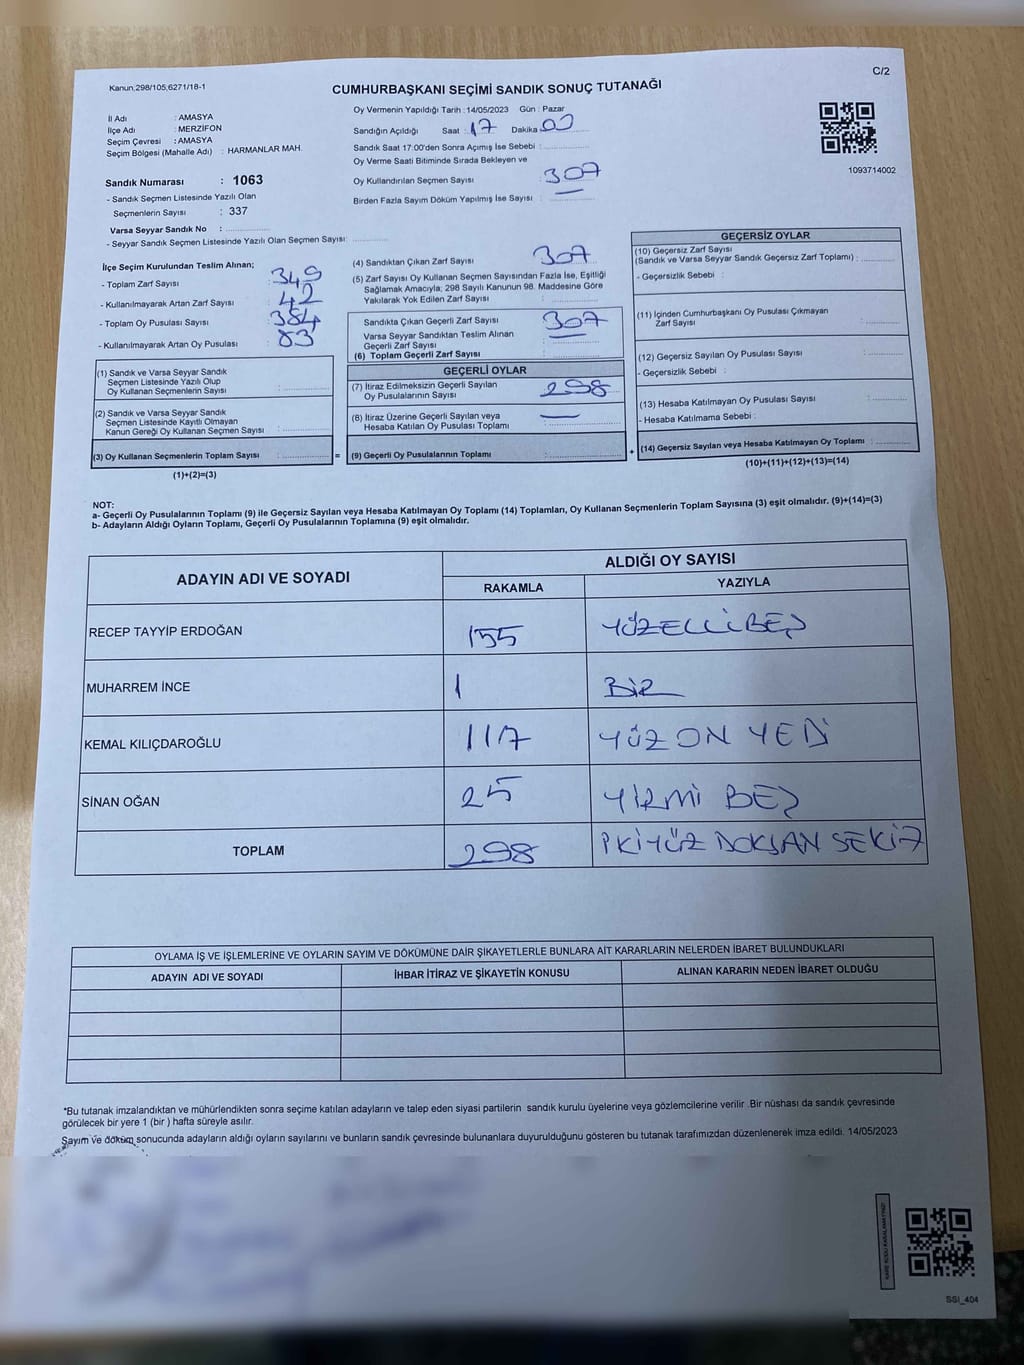 C/2
Kanun,298/105,6271/18-1
CUMHURBAŞKANI SEÇİMİ SANDIK SONUÇ TUTANAĞI
İl Adı : AMASYA
İlçe Adı : MERZİFON
Seçim Çevresi : AMASYA
Seçim Bölgesi (Mahalle Adı) : HARMANLAR MAH.
Sandık Numarası : 1063
- Sandık Seçmen Listesinde Yazılı Olan
Seçmenlerin Sayısı : 337
Varsa Seyyar Sandık No :
- Seyyar Sandık Seçmen Listesinde Yazılı Olan Seçmen Sayısı:
Oy Vermenin Yapıldığı Tarih : 14/05/2023 Gün : Pazar
Sandığın Açıldığı Saat : 17 Dakika : 00
Sandık Saat 17:00'den Sonra Açımış İse Sebebi :
Oy Verme Saati Bitiminde Sırada Bekleyen ve
Oy Kullandırılan Seçmen Sayısı : 307
Birden Fazla Sayım Döküm Yapılmış İse Sayısı : —
1093714002
İlçe Seçim Kurulundan Teslim Alınan;
- Toplam Zarf Sayısı : 349
- Kullanılmayarak Artan Zarf Sayısı : 42
- Toplam Oy Pusulası Sayısı : 384
- Kullanılmayarak Artan Oy Pusulası : 83
(1) Sandık ve Varsa Seyyar Sandık
Seçmen Listesinde Yazılı Olup
Oy Kullanan Seçmenlerin Sayısı :
(2) Sandık ve Varsa Seyyar Sandık
Seçmen Listesinde Kayıtlı Olmayan
Kanun Gereği Oy Kullanan Seçmen Sayısı :
(3) Oy Kullanan Seçmenlerin Toplam Sayısı :
(1)+(2)=(3)
(4) Sandıktan Çıkan Zarf Sayısı : 307
(5) Zarf Sayısı Oy Kullanan Seçmen Sayısından Fazla İse, Eşitliği
Sağlamak Amacıyla; 298 Sayılı Kanunun 98. Maddesine Göre
Yakılarak Yok Edilen Zarf Sayısı :
Sandıkta Çıkan Geçerli Zarf Sayısı : 307
Varsa Seyyar Sandıktan Teslim Alınan
Geçerli Zarf Sayısı : —
(6) Toplam Geçerli Zarf Sayısı
GEÇERLİ OYLAR
(7) İtiraz Edilmeksizin Geçerli Sayılan
Oy Pusulalarının Sayısı : 298
(8) İtiraz Üzerine Geçerli Sayılan veya
Hesaba Katılan Oy Pusulası Toplamı : —
= (9) Geçerli Oy Pusulalarının Toplamı :
GEÇERSİZ OYLAR
(10) Geçersiz Zarf Sayısı
(Sandık ve Varsa Seyyar Sandık Geçersiz Zarf Toplamı) :
- Geçersizlik Sebebi :
(11) İçinden Cumhurbaşkanı Oy Pusulası Çıkmayan
Zarf Sayısı :
(12) Geçersiz Sayılan Oy Pusulası Sayısı :
- Geçersizlik Sebebi :
(13) Hesaba Katılmayan Oy Pusulası Sayısı :
- Hesaba Katılmama Sebebi :
+ (14) Geçersiz Sayılan veya Hesaba Katılmayan Oy Toplamı :
(10)+(11)+(12)+(13)=(14)
NOT:
a- Geçerli Oy Pusulalarının Toplamı (9) ile Geçersiz Sayılan veya Hesaba Katılmayan Oy Toplamı (14) Toplamları, Oy Kullanan Seçmenlerin Toplam Sayısına (3) eşit olmalıdır. (9)+(14)=(3)
b- Adayların Aldığı Oyların Toplamı, Geçerli Oy Pusulalarının Toplamına (9) eşit olmalıdır.
ADAYIN ADI VE SOYADI ALDIĞI OY SAYISI
RAKAMLA YAZIYLA
RECEP TAYYİP ERDOĞAN 155 YÜZELLİBEŞ
MUHARREM İNCE 1 BİR
KEMAL KILIÇDAROĞLU 117 YÜZ ON YEDİ
SİNAN OĞAN 25 YİRMİ BEŞ
TOPLAM 298 İKİYÜZ DOKSAN SEKİZ
OYLAMA İŞ VE İŞLEMLERİNE VE OYLARIN SAYIM VE DÖKÜMÜNE DAİR ŞİKAYETLERLE BUNLARA AİT KARARLARIN NELERDEN İBARET BULUNDUKLARI
ADAYIN ADI VE SOYADI İHBAR İTİRAZ VE ŞİKAYETİN KONUSU ALINAN KARARIN NEDEN İBARET OLDUĞU
*Bu tutanak imzalandıktan ve mühürlendikten sonra seçime katılan adayların ve talep eden siyasi partilerin sandık kurulu üyelerine veya gözlemcilerine verilir .Bir nüshası da sandık çevresinde
görülecek bir yere 1 (bir ) hafta süreyle asılır.
Sayım ve döküm sonucunda adayların aldığı oyların sayılarını ve bunların sandık çevresinde bulunanlara duyurulduğunu gösteren bu tutanak tarafımızdan düzenlenerek imza edildi. 14/05/2023
KARE KODU KARALAMAYINIZ!
SSI_404